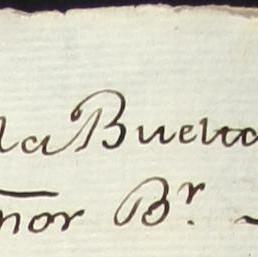 la Buelta
nor Br.